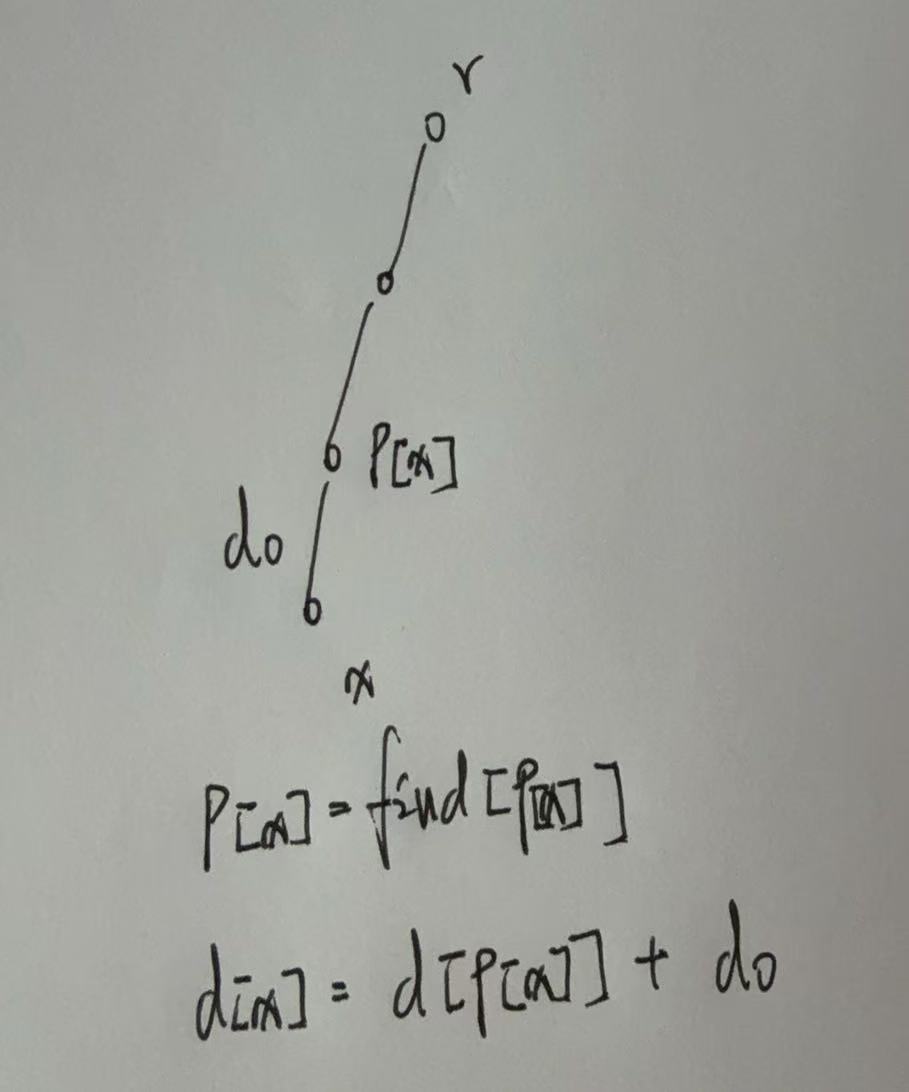 r
P[x]
do
x
P[x] = find [P[x]]
d[x] = d[P[x]] + do